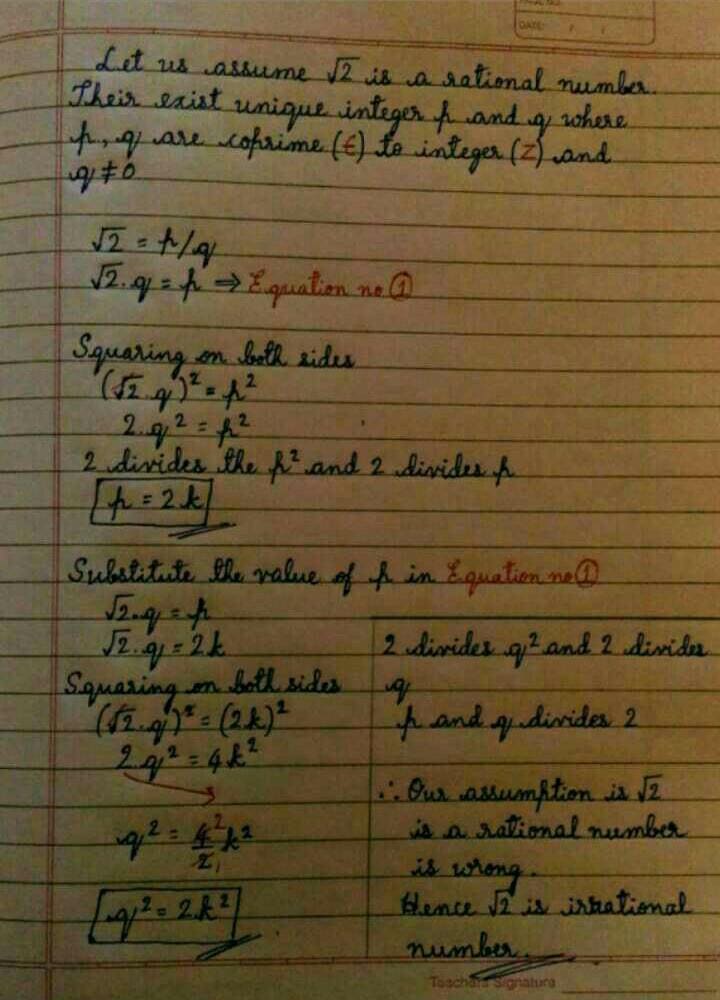 PAGE NO.
DATE: / /
Let us assume √2 is a rational number.
Their exist unique integer p and q where
p, q are coprime (€) to integer (Z) and
q ≠ 0
√2 = p/q
√2.q = p ⇒ Equation no ①
Squaring on both sides
(√2.q)² = p²
2.q² = p²
2 divides the p² and 2 divides p
p = 2k
Substitute the value of p in Equation no ①
√2.q = p
√2.q = 2k
Squaring on both sides
(√2.q)² = (2k)²
2.q² = 4k²
q² = 4²/2₁ k²
q² = 2k²
2 divides q² and 2 divides
q
p and q divides 2
∴ Our assumption is √2
is a rational number
is wrong.
Hence √2 is irrational
number.
Teachers Signature